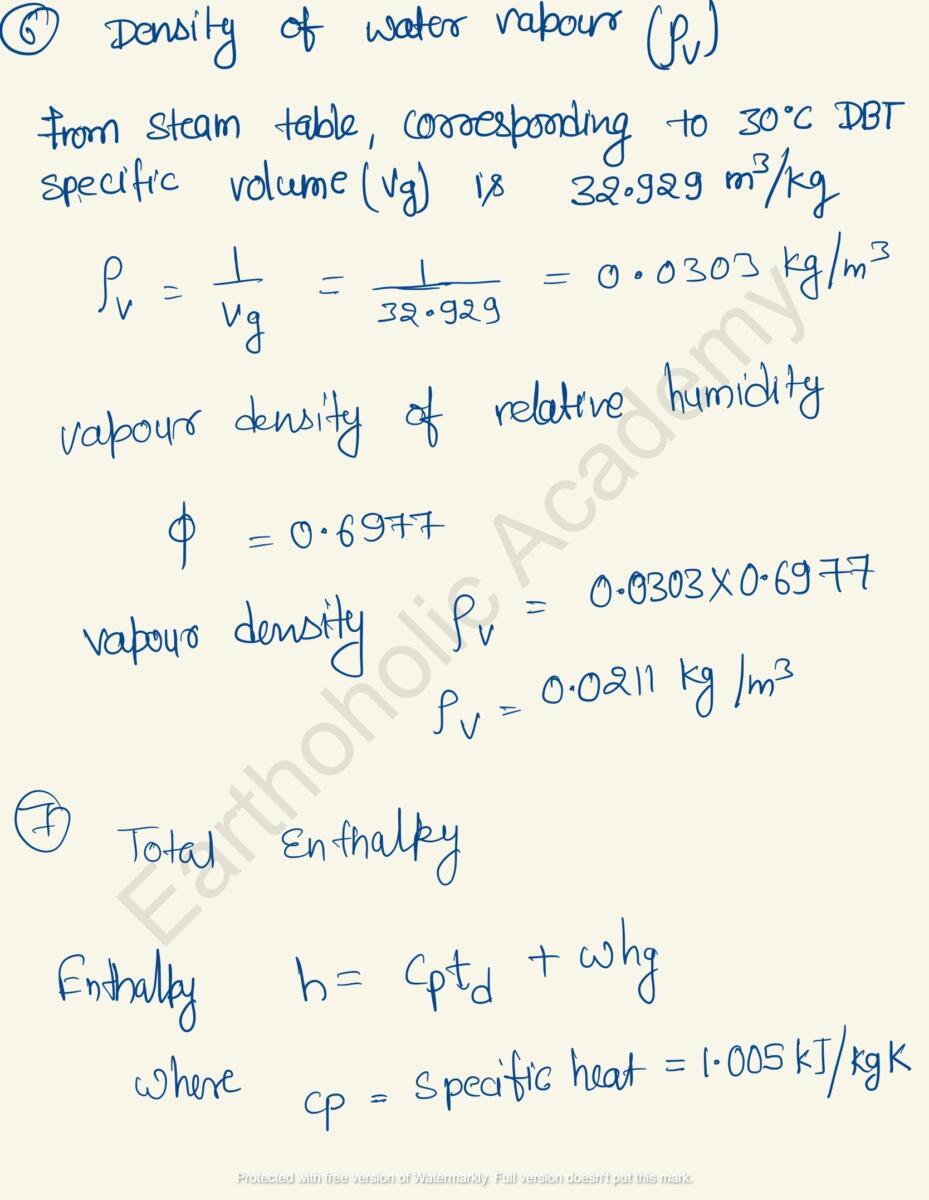 ⑥ Density of water vapour (ρv)
from steam table, corresponding to 30°C DBT
specific volume (vg) is 32.929 m³/kg
ρv = 1/vg = 1/32.929 = 0.0303 kg/m³
vapour density of relative humidity
ϕ = 0.6977
vapour density ρv = 0.0303 X 0.6977
ρv = 0.0211 kg/m³
⑦ Total Enthalpy
Enthalpy h = cptd + whg
where cp = specific heat = 1.005 kJ/kg K
Earthoholic Academy
Protected with free version of Watermarkly. Full version doesn't put this mark.